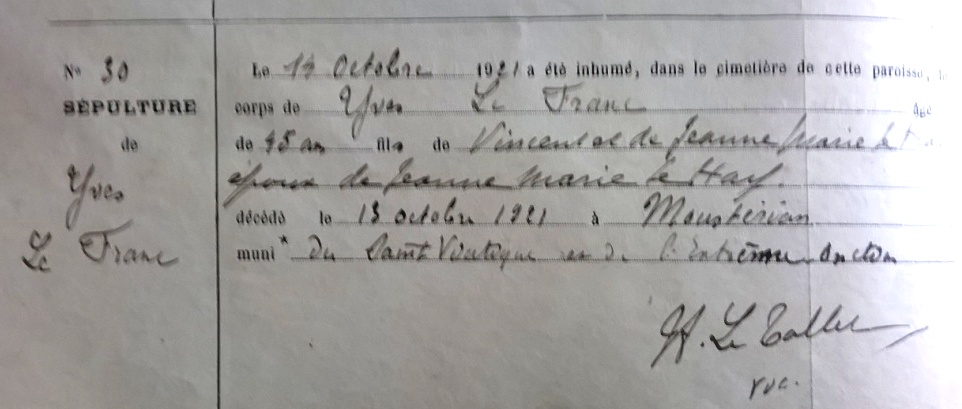 N° 30
SÉPULTURE
de
Yves
Le Franc
Le 14 Octobre 1921 a été inhumé, dans le cimetière de cette paroisse, le
corps de Yves Le Franc Agé
de 45 an fils de Vincent et de Jeanne Marie le
époux de Jeanne Marie le Hay.
décédé le 13 octobre 1921 à Moustérian
muni* du Saint Viatique et de l'Extrême onction
Le Tallec